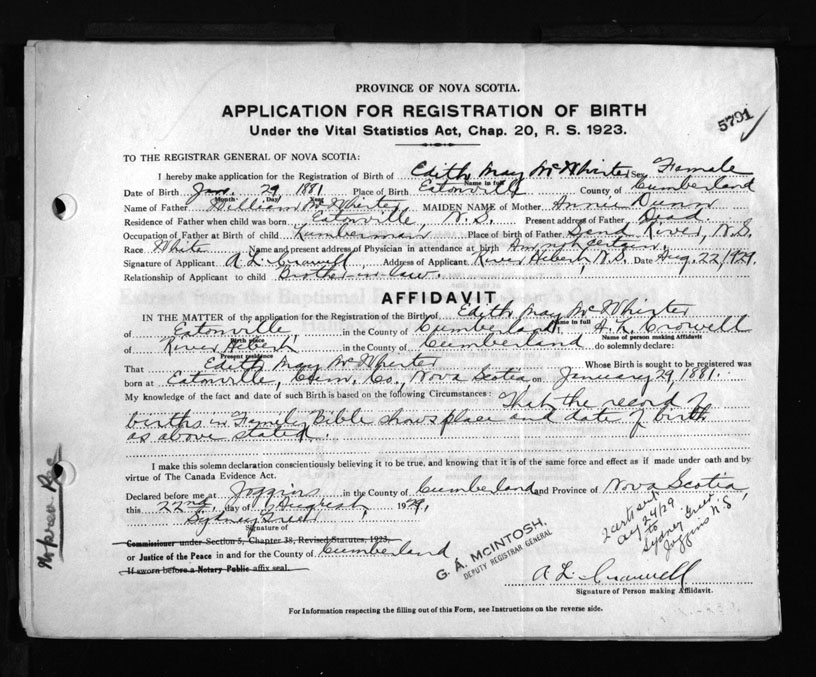 PROVINCE OF NOVA SCOTIA.
APPLICATION FOR REGISTRATION OF BIRTH
Under the Vital Statistics Act, Chap. 20, R. S. 1923.
5791
TO THE REGISTRAR GENERAL OF NOVA SCOTIA:
I hereby make application for the Registration of Birth of Edith May McWherter Sex Female
Name in full
Date of Birth Jan. 29 1881 Place of Birth Eatonville County of Cumberland
Month Day Year
Name of Father William McWherter MAIDEN NAME of Mother Annie Dunn
Residence of Father when child was born Eatonville, N.S. Present address of Father Dead
Occupation of Father at Birth of child Lumberman Place of birth of Father Sand River, N.S.
Race White Name and present address of Physician in attendance at birth Am not certain.
Signature of Applicant A L Crowell Address of Applicant River Hebert, N.S. Date Aug. 22, 1929.
Relationship of Applicant to child Brother-in-law.
AFFIDAVIT
IN THE MATTER of the application for the Registration of the Birth of Edith May McWherter
Name in full
of Eatonville, in the County of Cumberland. A. L. Crowell
Birth place Name of person making Affidavit
of River Hebert in the County of Cumberland do solemnly declare:
Present residence
That Edith May McWherter Whose Birth is sought to be registered was
born at Eatonville, Cum. Co., Nova Scotia on January 29, 1881.
My knowledge of the fact and date of such Birth is based on the following Circumstances: That the record of
births in Family Bible shows place and date of birth
as above stated.
I make this solemn declaration conscientiously believing it to be true, and knowing that it is of the same force and effect as if made under oath and by
virtue of The Canada Evidence Act.
Declared before me at Joggins in the County of Cumberland and Province of Nova Scotia,
this 22nd day of August, 1929.
Signature of
Commissioner under Section 5, Chapter 38, Revised Statutes, 1923,
or Justice of the Peace in and for the County of Cumberland
If sworn before a Notary Public affix seal.
G. A. MCINTOSH.
DEPUTY REGISTRAR GENERAL
2 certs sent
Aug 24/29
to
Sydney
Joggins N.S.
A L Crowell
Signature of Person making Affidavit.
For Information respecting the filling out of this Form, see Instructions on the reverse side.